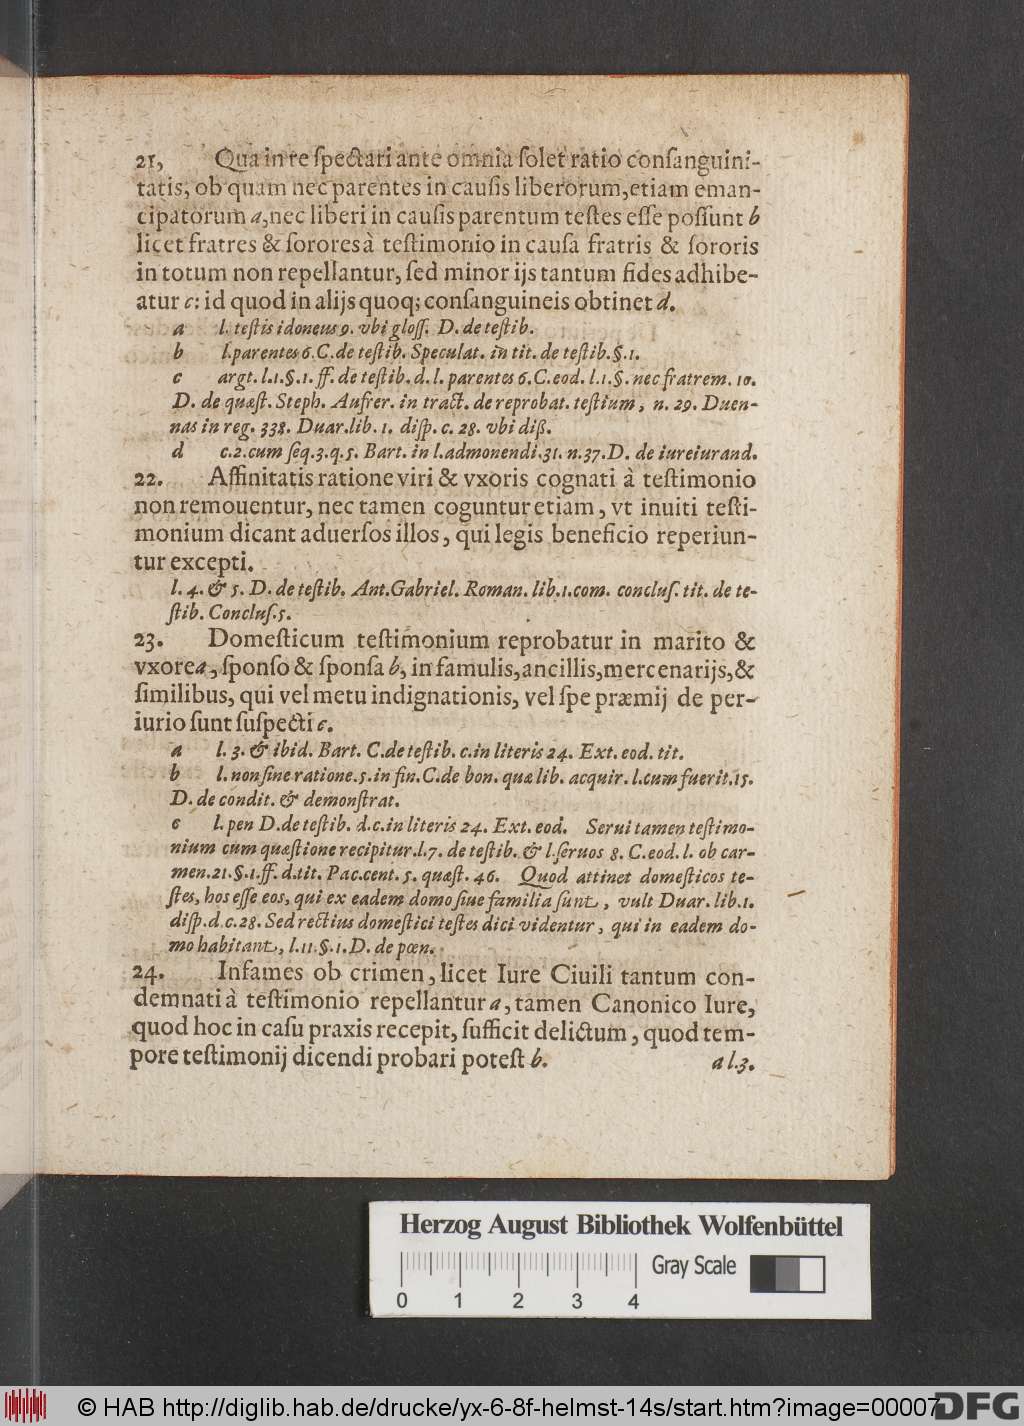 21, Qua in re ſpectari ante omnia ſolet ratio conſanguini-
tatis, ob quam nec parentes in cauſis liberorum, etiam eman-
cipatorum a, nec liberi in cauſis parentum teſtes eſſe poſſunt b
licet fratres & ſorores à teſtimonio in cauſa fratris & ſororis
in totum non repellantur, ſed minor ijs tantum fides adhibe-
atur c: id quod in alijs quoq; conſanguineis obtinet d.
a l. teſtis idoneus 9. vbi gloſſ. D. de teſtib.
b l. parentes 6. C. de teſtib. Speculat. in tit. de teſtib. §. 1.
c argt. l. 1. §. 1. ff. de teſtib. d. l. parentes 6. C. eod. l. 1. §. nec fratrem. 10.
D. de quæſt. Steph. Aufrer. in tract. de reprobat. teſtium, n. 29. Duen-
nas in reg. 338. Duar. lib. 1. diſp. c. 28. vbi diß.
d c. 2. cum ſeq. 3. q. 5. Bart. in l. admonendi. 31. n. 37. D. de iureiurand.
22. Affinitatis ratione viri & vxoris cognati à teſtimonio
non remouentur, nec tamen coguntur etiam, vt inuiti teſti-
monium dicant aduerſos illos, qui legis beneficio reperiun-
tur excepti.
l. 4. & 5. D. de teſtib. Ant. Gabriel. Roman. lib. 1. com. concluſ. tit. de te-
ſtib. Concluſ. 5.
23. Domeſticum teſtimonium reprobatur in marito &
vxore a, ſponſo & ſponſa b, in famulis, ancillis, mercenarijs, &
ſimilibus, qui vel metu indignationis, vel ſpe præmij de per-
iurio ſunt ſuſpecti c.
a l. 3. & ibid. Bart. C. de teſtib. c. in literis 24. Ext. eod. tit.
b l. non ſine ratione. 5. in fin. C. de bon. quæ lib. acquir. l. cum fuerit. 15.
D. de condit. & demonſtrat.
c l. pen D. de teſtib. d. c. in literis 24. Ext. eod. Serui tamen teſtimo-
nium cum quæſtione recipitur. l. 7. de teſtib. & l. ſeruos 8. C. eod. l. ob car-
men. 21. §. 1. ff. d. tit. Pac. cent. 5. quæſt. 46. Quod attinet domeſticos te-
ſtes, hos eſſe eos, qui ex eadem domo ſiue familia ſunt, vult Duar. lib. 1.
diſp. d. c. 28. Sed rectius domeſtici teſtes dici videntur, qui in eadem do-
mo habitant, l. 11. §. 1. D. de pœn.
24. Infames ob crimen, licet Iure Ciuili tantum con-
demnati à teſtimonio repellantur a, tamen Canonico Iure,
quod hoc in caſu praxis recepit, ſufficit delictum, quod tem-
pore teſtimonij dicendi probari poteſt b.
a l. 3.
Herzog August Bibliothek Wolfenbüttel
Gray Scale
0 1 2 3 4
© HAB http://diglib.hab.de/drucke/yx-6-8f-helmst-14s/start.htm?image=00007
DFG